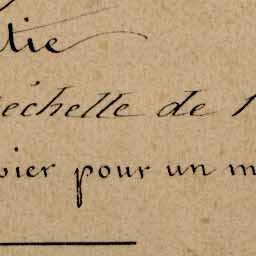 tie
échelle de 1
pour un m